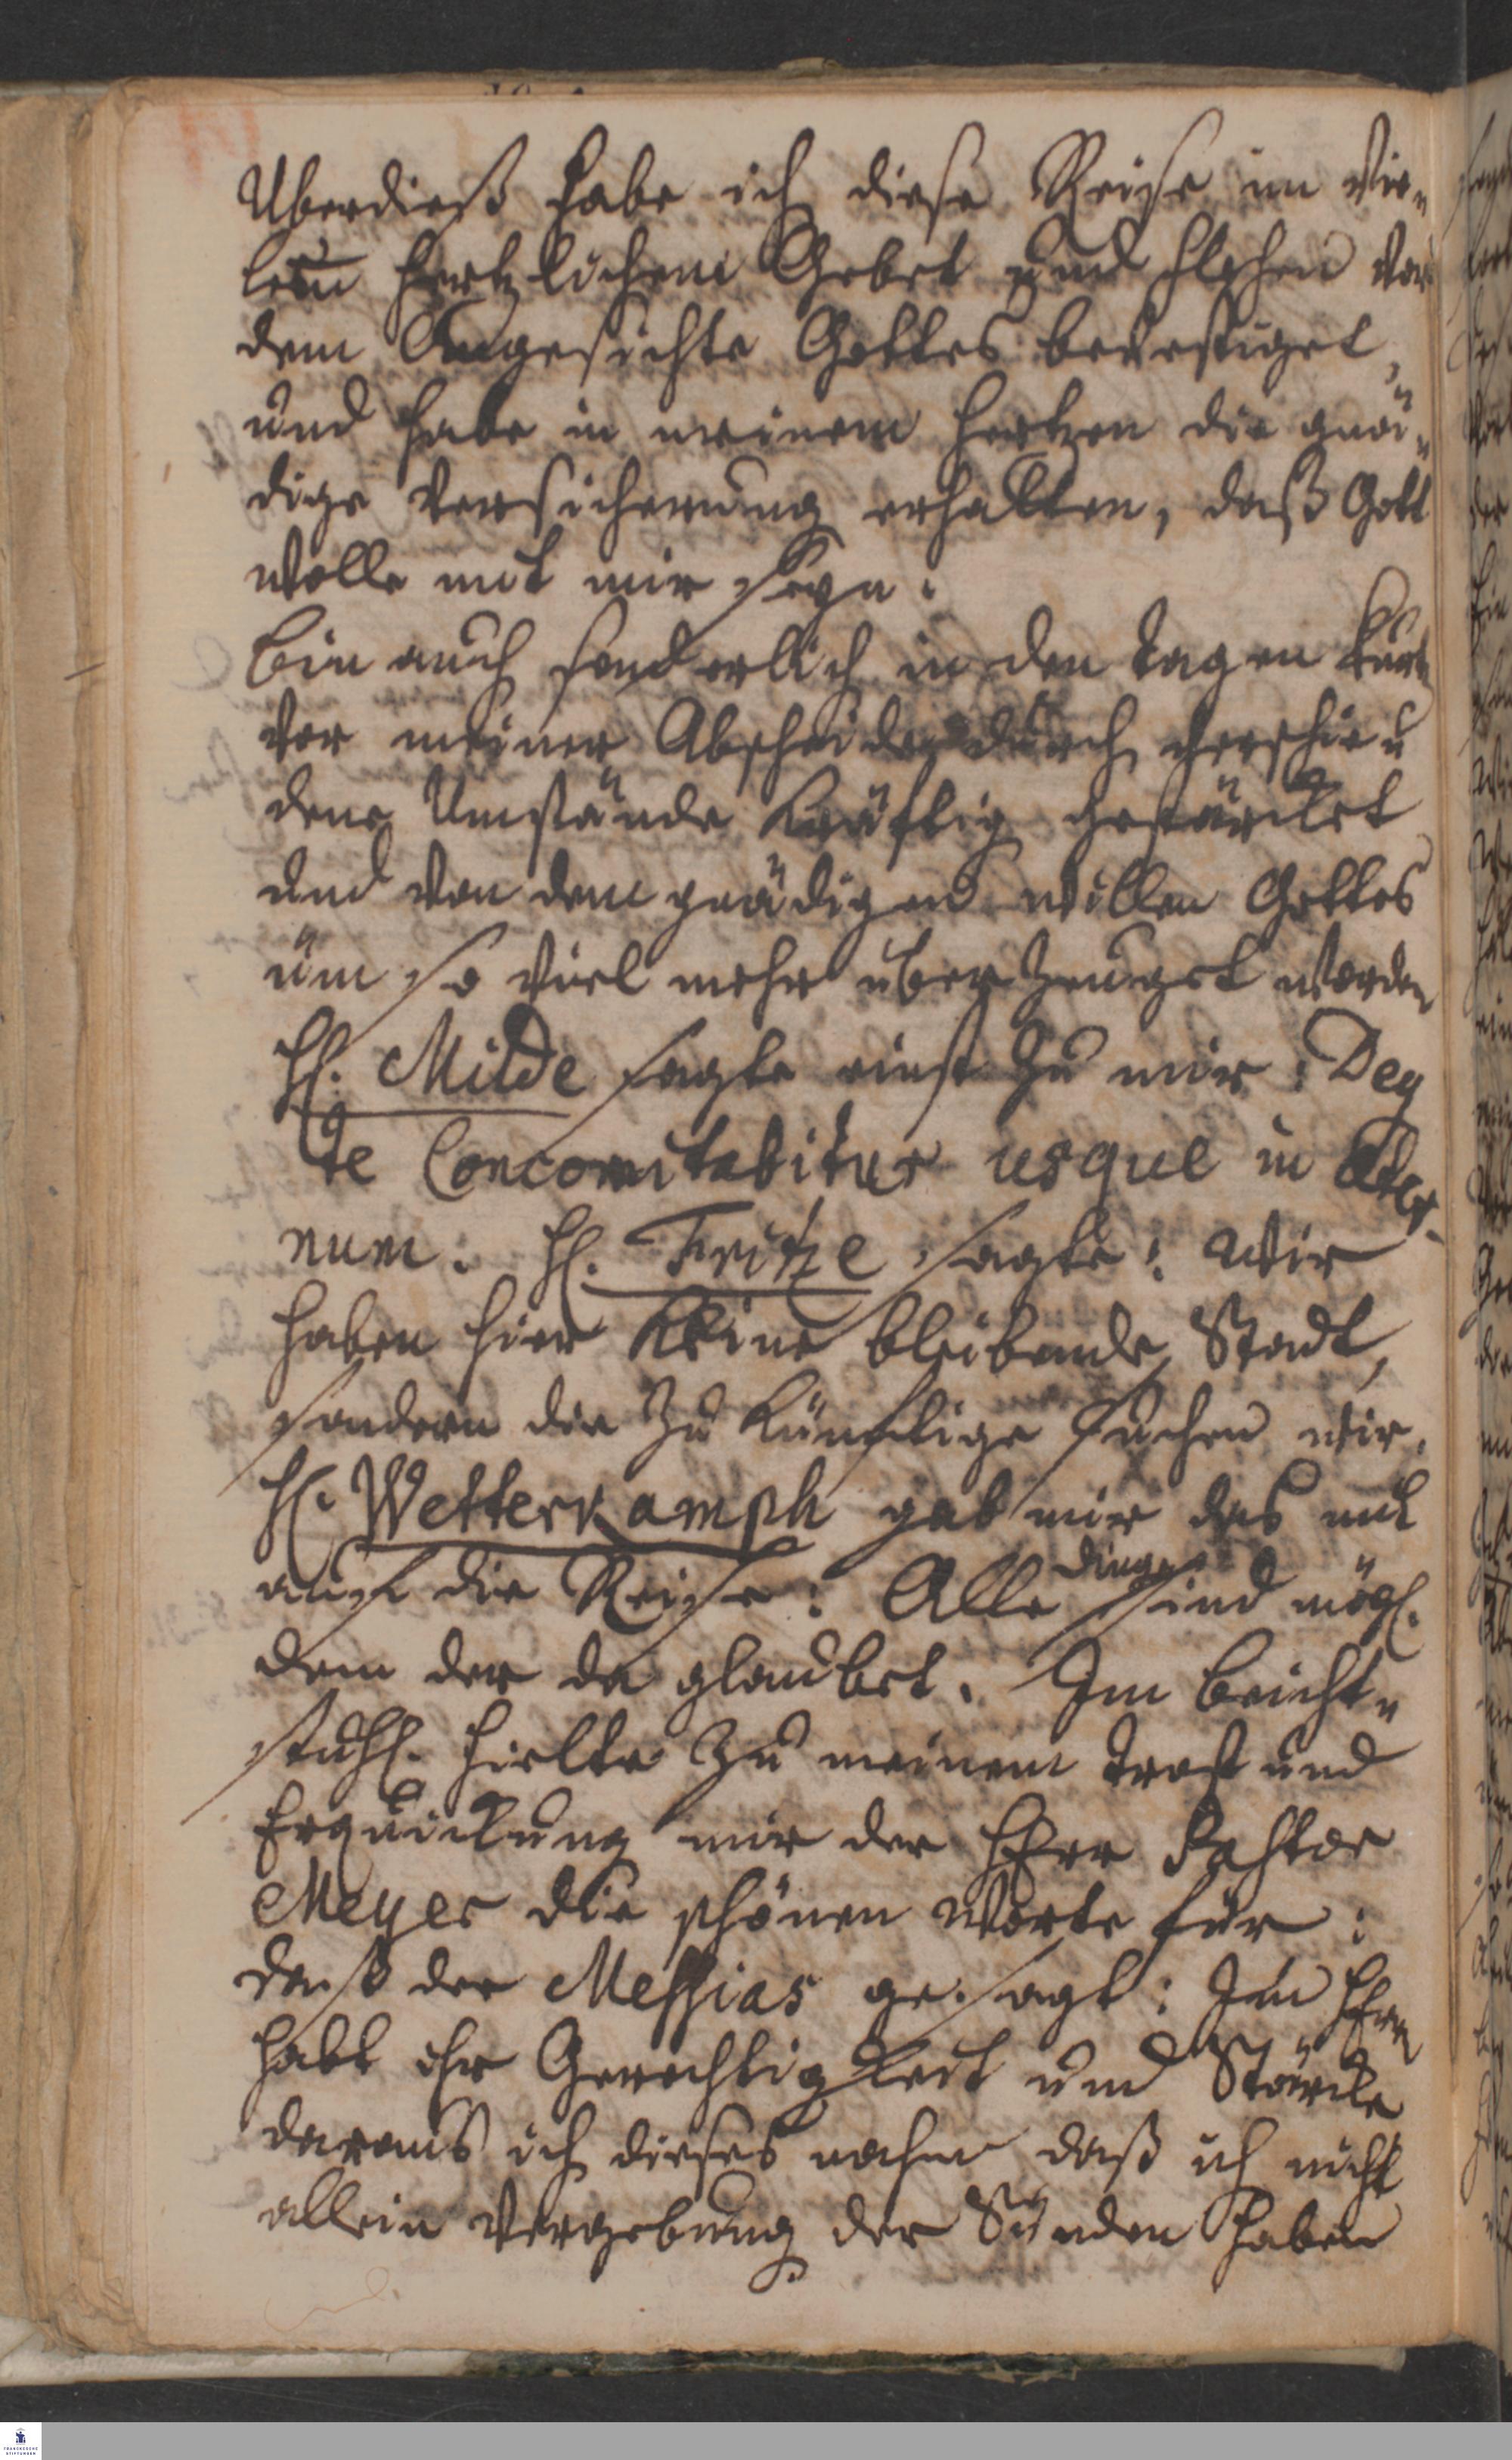 Uberdieß habe ich diese Reise in vie-
len hertzlichem Gebet und Flehen vor
dem Angesichte Gottes bevestiget,
und habe in meinem Hertzen die gnä-
dige Versicherung erhalten, daß Gott
wolle mit mir seyn.
Bin auch sonderlich in den Tagen kurtz
vor meiner Abscheiden durch verschie-
dene Umstände kräftig gestärcket
und von dem gnädigen Willen Gottes
üm so viel mehr überzeuget worden
H. Milde sagte einst zu mir:
te Concomitabitur usque in Æter-
num. H. Fritze sagte: Wir
haben hier keine bleibende Stadt,
sondern die zukünftige suchen wir.
H. Wetterkamph gab mir das mit
auf die Reise: Alle Dinge sind mögl.
dem der da glaubet. Im Beicht-
stuhl. hielte zu meinem Trost und
Erquickung mir der Herr Pastor
Meyer die schönen Worte für:
daß der Messias gesagt: Im HErrn
habt ihr Gerechtigkeit und Stärcke
daraus ich dieses nahm daß ich nicht
allein Vergebung der Sünden haben
FRANCKESCHE
STIFTUNGEN